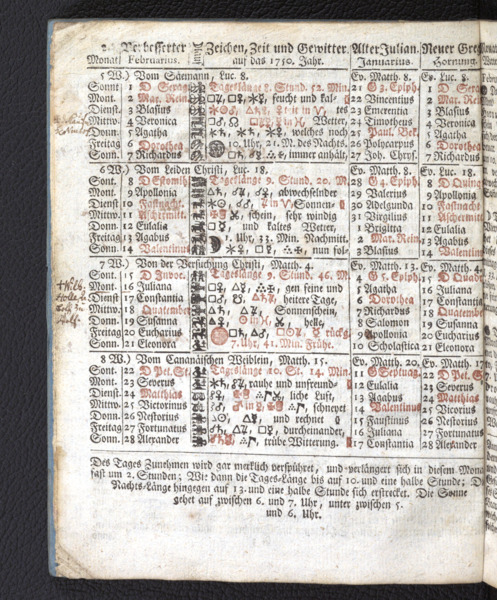 2. Verbesserter Zeichen, Zeit und Gewitter Alter Julian. Neuer Greg
Monat Februarius. auf das 1750. Jahr. Januarius. Hornung.
5 W.) Vom Säemann, Luc. 8. Ev. Matth. 8. Ev. Luc. 8.
Sonnt 1 Tageslänge 9. Stund. 52. Min. 21 G 3. Epiph 1
Mont 2 Mar. Rein feucht und kal- 22 Vincentius 2 Mar. Rein
Dienst 3 Blasius tes 23 Emerentia 3 Blasius
Mittw. 4 Veronica Wetter, 24 Timotheus 4 Veronica
Donn. 5 Agatha welches noch 25 Paul. Bek. 5 Agatha
Freitag 6 Dorothea 10. Uhr, 21. M. des Nachts. 26 Polycarpus 6 Dorothea
Sonn. 7 Richardus immer anhält, 27 Joh. Chrys. 7 Richardus
6 W.) Vom Leiden Christi, Luc. 18. Ev. Matth. 8. Ev. Luc. 18.
Sonnt 8 Tageslänge 9. Stund. 20. M. 28 G 4. Epiph 8
Mont. 9 Apollonia abwechselnder 29 Valerius 9 Apollonia
Dienst 10 Fastnacht. Sonnen- 30 Adelgunda 10 Fastnacht
Mittw. 11 Aschermitt. schein, sehr windig 31 Virgilius 11 Aschermitt
Donn 12 Eulalia und kaltes Wetter, 1 Brigitta 12 Eulalia
Freitag 13 Agabus 1. Uhr. 33. Min. Nachmitt. 2 Mar. Rein 13 Agabus
Sonn. 14 Valentinus nun fol- 3 Blasius 14 Valentinus
7 W.) Von der Versuchung Christi, Matth. 4. Ev. Matth. 13. Ev. Matth. 4.
Sonn. 15 D Invoc. Tageslänge 9. Stund. 46. M. 4 G 5. Epiph. 15
Mont. 16 Juliana gen feine und 5 Agatha 16 Juliana
Dienst 17 Constantia heitere Tage, 6 Dorothea 17 Constantia
Mittw. 18 Quatember Sonnenschein, 7 Richardus 18 Quatember
Donn. 19 Susanna helle, 8 Salomon 19 Susanna
Freitag 20 Eucharius 9 Apollonia 20 Eucharius
Sonn. 21 Eleonora 7. Uhr, 41. Min. Frühe. 10 Scholastica 21 Eleonora
8 W.) Vom Cananäischen Wiblein, Matth. 15. Ev. Matth. 20. Ev. Matth. 15.
Sonn. 22 Tageslänge 10. St. 14. Min. 11 G Septuag. 22
Mont. 23 Severus rauhe und unfreund- 12 Eulalia 23 Severus
Dienst 24 Matthias liche Luft, 13 Agabus 24 Matthias
Mittw. 25 Victorinus schneyet 14 Valentinus 25 Victorius
Donn. 26 Nestorius und rechnet 15 Faustinus 26 Nestorius
Freitag 27 Fortunatus durcheinander, 16 Juliana 27 Fortunatus
Sonn. 28 Alexander trübe Witterung. 17 Constantia 28 Alexander
Des Tages Zunehmen wird gar merklich verspühret, und verlängert sich in diesem Mona
fast um 2. Stunden; Wie dann die Tages-Länge bis auf 10. und eine halbe Stunde; D
Nachts-Länge hingegen auf 13. und eine halbe Stunde sich erstrecket. Die Sonne
gehet auf zwischen 6. und 7. Uhr, unter zwischen 5.
und 6. Uhr.